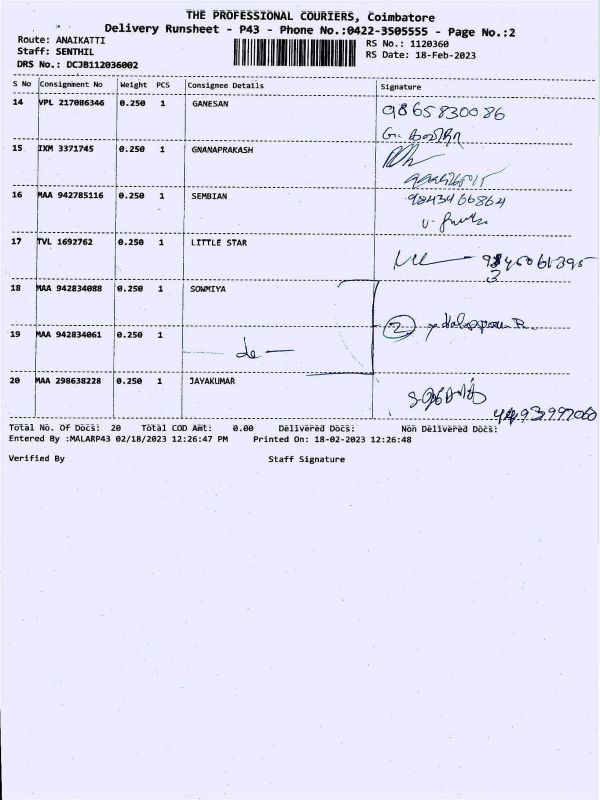 THE PROFESSIONAL COURIERS, Coimbatore
Delivery Runsheet - P43 - Phone No.:0422-3505555 - Page No.:2
Route: ANAIKATTI
Staff: SENTHIL
DRS No.: DCJB112036002
RS No.: 1120360
RS Date: 18-Feb-2023
S No Consignment No Weight PCS Consignee Details Signature
14 VPL 217086346 0.250 1 GANESAN 9865830086
15 IXM 3371745 0.250 1 GNANAPRAKASH
16 MAA 942785116 0.250 1 SEMBIAN 9843466864
17 TVL 1692762 0.250 1 LITTLE STAR
18 MAA 942834088 0.250 1 SOWMIYA
19 MAA 942834061 0.250 1 de — 2
20 MAA 298638228 0.250 1 JAYAKUMAR
Total No. Of Docs: 20 Total COD Amt: 0.00 Delivered Docs: Non Delivered Docs:
Entered By :MALARP43 02/18/2023 12:26:47 PM Printed On: 18-02-2023 12:26:48
Verified By Staff Signature